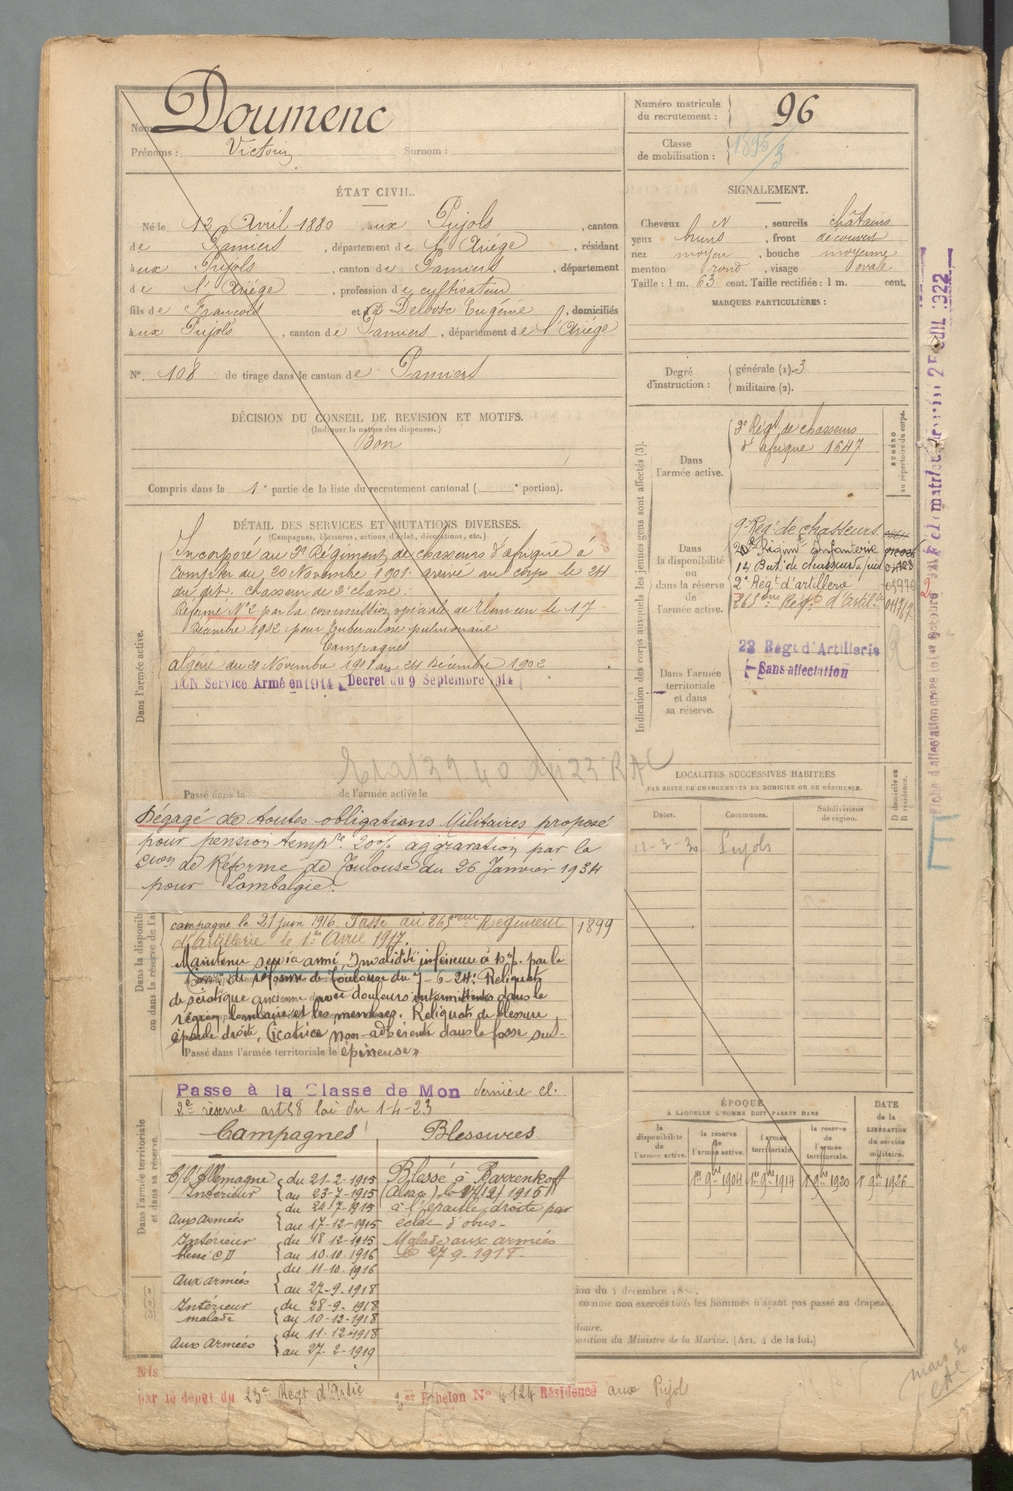 Nom : Doumenc
Prénoms : Victorin Surnom :
Numéro matricule du recrutement : 96
Classe de mobilisation : 1896/3
ÉTAT CIVIL.
Né le 13 Avril 1880 aux Pujols, canton
de Pamiers, département de l'Ariège, résidant
aux Pujols, canton de Pamiers, département
de l'Ariège, profession de cultivateur
fils de François et de Delbosc Eugénie, domiciliés
aux Pujols, canton de Pamiers, département de l'Ariège
N° 108 de tirage dans le canton de Pamiers
DÉCISION DU CONSEIL DE REVISION ET MOTIFS.
(Indiquer la nature des dispenses.)
Bon
Compris dans la 1e partie de la liste du recrutement cantonal ( e portion).
SIGNALEMENT.
Cheveux N, sourcils châtains
yeux bruns, front découvert
nez moyen, bouche moyenne
menton rond, visage ovale
Taille : 1 m. 63 cent. Taille rectifiée : 1 m. cent.
MARQUES PARTICULIÈRES :
Degré d'instruction : générale (1). 3
militaire (2).
DÉTAIL DES SERVICES ET MUTATIONS DIVERSES.
(Campagnes, blessures, actions d'éclat, décorations, etc.)
Dans l'armée active.
Incorporé au 3e Régiment de chasseurs d'afrique à
compter du 20 Novembre 1901. arrivé au corps le 24
du dit. chasseur de 2e classe.
Réformé N°2 par la commission spéciale de Tlemcen le 17
Décembre 1902 pour tuberculose pulmonaire
Campagnes
Algérie du 21 Novembre 1901 au 24 Décembre 1902
BON Service Armé en 1914 Décret du 9 Septembre 1914
Passé dans la de l'armée active le
Dégagé de toutes obligations Militaires proposé
pour pension tempre 20% aggravation par la
Cion de Réforme de Toulouse du 26 Janvier 1934
pour "Lombalgie".
campagne le 21 juin 1916. Passé au 265eme Régiment
d'Artillerie le 1er Avril 1917.
1899
Maintenu service armé, Invalidité inférieure à 10% par la
Con de réforme de Toulouse du 7-6-24: Reliquats
de sciatique ancienne avec douleurs intermittentes dans la
région lombaire et les membres. Reliquats de blessure
épaule droite, Cicatrice non-adhérente dans la fosse sus-
Passé dans l'armée territoriale le épineuse»
Dans l'armée territoriale et dans sa réserve.
Passe à la Classe de Mon dernière cl.
2e réserve art 58 loi du 1-4-23
Campagnes Blessures
C/ l'Allemagne
Intérieur { du 21-2-1915 au 23-7-1915
Aux armées { du 24-7-1915 au 17-12-1915
Intérieur blessé C D { du 18-12-1915 au 10-10-1916
Aux armées { du 11-10-1916 au 27-9-1918
Intérieur malade { du 28-9-1918 au 10-12-1918
Aux Armées { du 11-12-1918 au 27-2-1919
Blessé à Barrenkopf
(Alsace) le 17/12/1915
à l'épaule droite par
éclat d'obus -
Malade aux armées
le 27-9-1918-
Indication des corps auxquels les jeunes gens sont affectés (3).
NUMÉRO au répertoire du corps.
Dans l'armée active.
3e Régt de chasseurs
d'afrique 1647
Dans la disponibilité ou dans la réserve de l'armée active.
9e Régt de chasseurs
14 Bat. de chasseurs à pied
2e Régt d'artillerie
265eme Régt d'Artil.
Dans l'armée territoriale et dans sa réserve.
23 Régt d'Artillerie
Sans affectation
LOCALITÉS SUCCESSIVES HABITÉES
PAR SUITE DE CHANGEMENTS DE DOMICILE OU DE RÉSIDENCE.
Dates. Communes. Subdivisions de région. D domicile ou R résidence.
Pujols
ÉPOQUE
À LAQUELLE L'HOMME DOIT PASSER DANS
la disponibilité de l'armée active. la réserve de l'armée active. l'armée territoriale. la réserve de l'armée territoriale.
DATE de la LIBÉRATION du service militaire.
1er 9bre 1904 1er 9bre 1914 1er 9bre 1920 1er 9bre 1926
comme non exercés tous les hommes n'ayant pas passé au drapeau.
du Ministre de la Marine. (Art. 4 de la loi.)
par le dépôt du 23e Régt d'Artie 2e Échelon N° 4124 Résidence aux Pujols